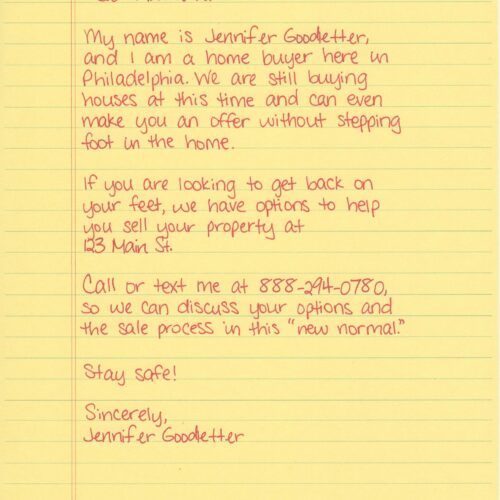 My name is Jennifer Goodletter,
and I am a home buyer here in
Philadelphia. We are still buying
houses at this time and can even
make you an offer without stepping
foot in the home.
If you are looking to get back on
your feet, we have options to help
you sell your property at
123 Main St.
Call or text me at 888-294-0780,
so we can discuss your options and
the sale process in this "new normal."
Stay safe!
Sincerely,
Jennifer Goodletter